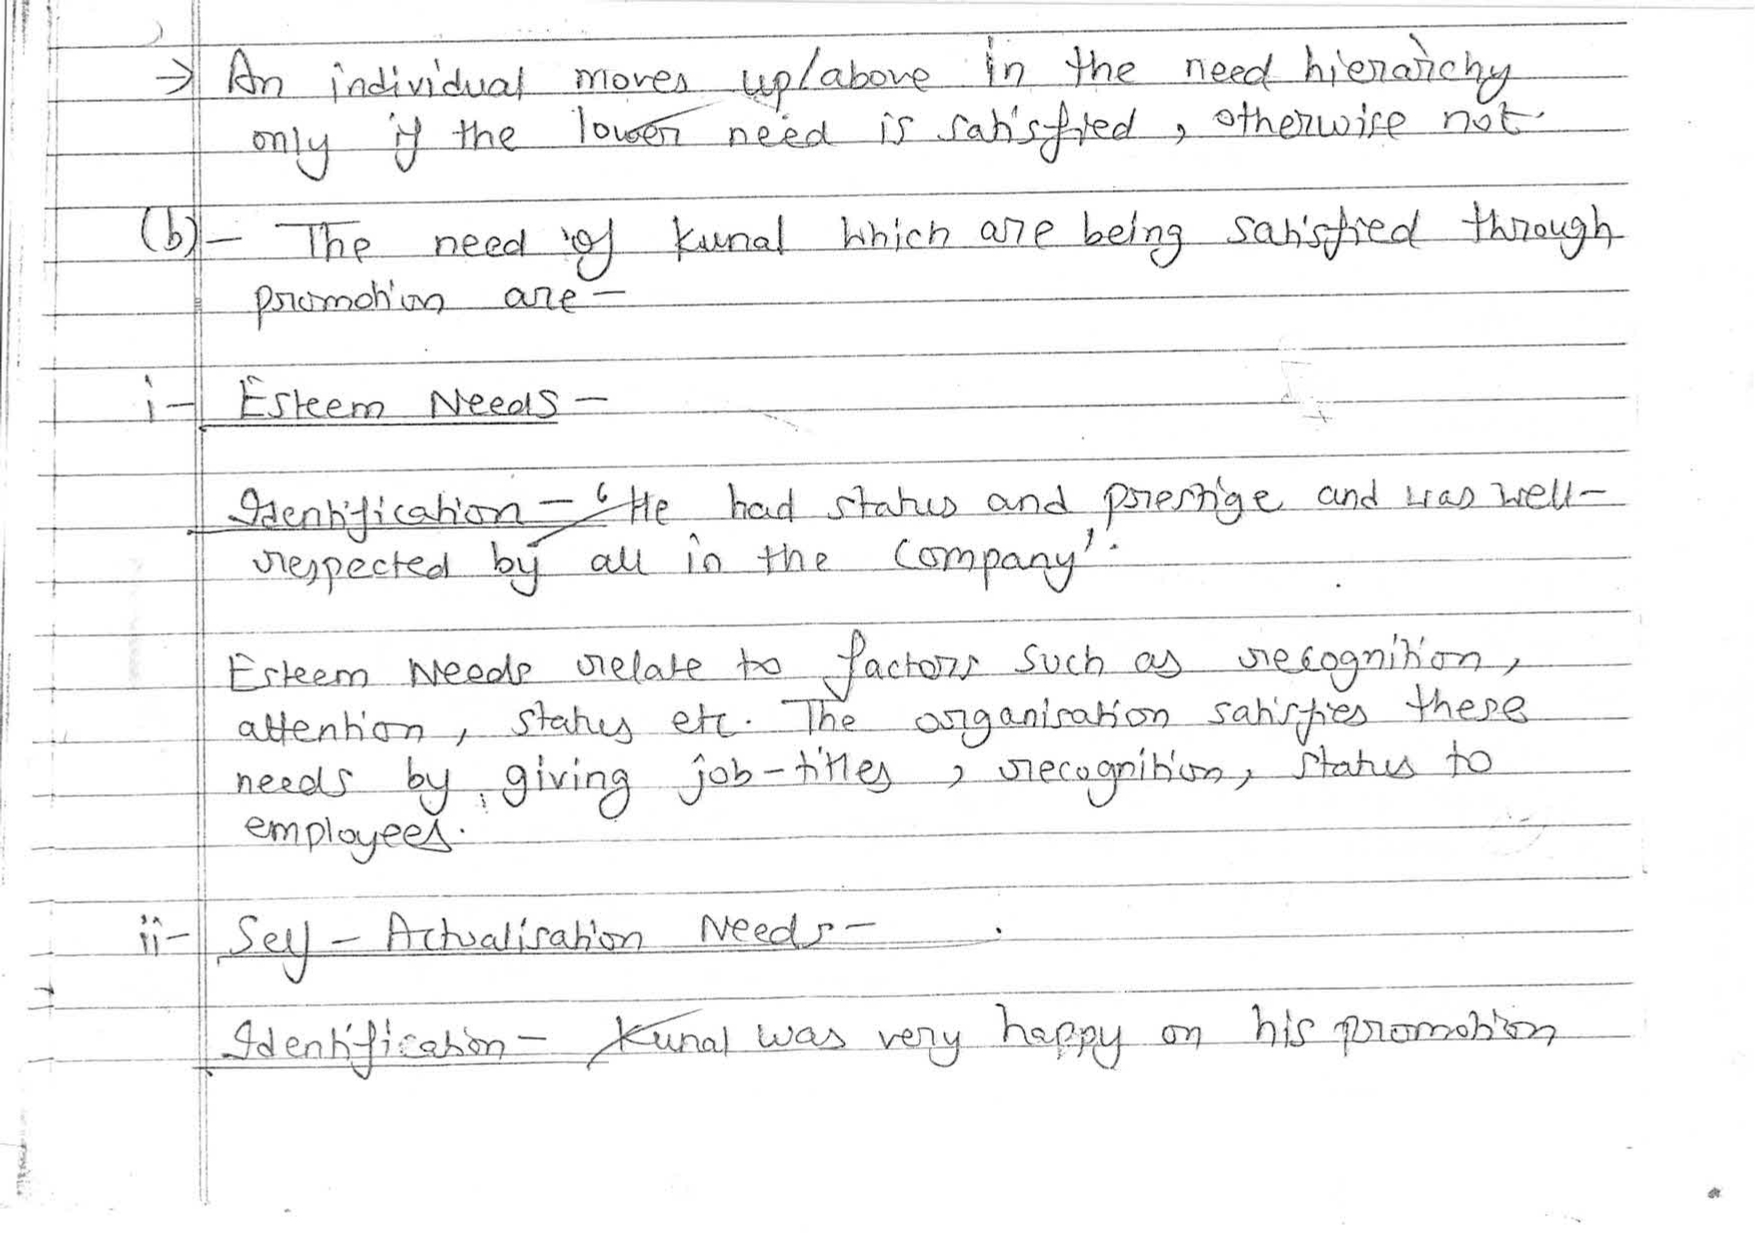 → An individual moves up/above in the need hierarchy
only if the lower need is satisfied, otherwise not.
(b) – The need of Kunal which are being satisfied through
promotion are –
i – Esteem Needs –
Identification – 'He had status and prestige and was well-
respected by all in the company'.
Esteem Needs relate to factors such as recognition,
attention, status etc. The organisation satisfies these
needs by giving job-titles, recognition, status to
employees.
ii – Self – Actualisation Needs –
Identification – Kunal was very happy on his promotion